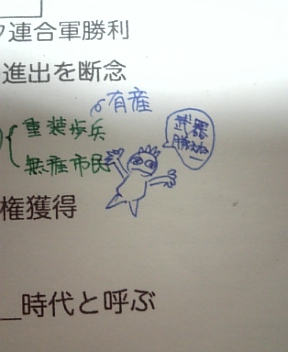 ク連合軍勝利
進出を断念
有産
重装歩兵
無産市民
武器
権獲得
時代と呼ぶ